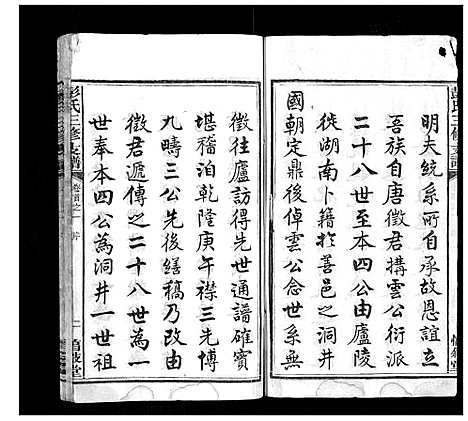 明夫統系所自承故恩誼立
吾族自唐徵君構雲公衍派
二十八世至本四公由廬陵
徙湖南卜籍於善邑之洞井
國朝定鼎後倬雲公念世系無
徵往廬訪求世通譜確實
堪稽泊乾隆庚午襟三先博
九疇三公先後繕稿乃改由
徵君遞傳之二十八世為一
世奉本四公為洞井一世祖
彭氏三修支譜
卷首之一